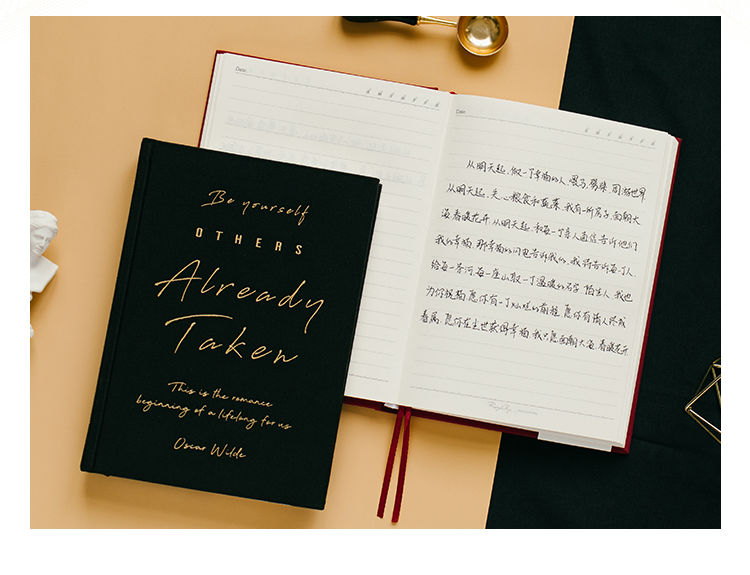 Be yourself
OTHERS
Already
Taken
This is the romance
beginning of a lifelong for us
Oscar Wilde
Date:
Date:
从明天起,做一个幸福的人,喂马,劈柴,周游世界
从明天起,关心粮食和蔬菜,我有一所房子,面朝大
海,春暖花开,从明天起,和每一个亲人通信告诉他们
我的幸福,那幸福的闪电告诉我的,我将告诉每个人
给每一条河,每一座山取一个温暖的名字,陌生人,我也
为你祝福,愿你有一个灿烂的前程,愿你有情人终成
眷属,愿你在尘世获得幸福,我只愿面朝大海,春暖花开